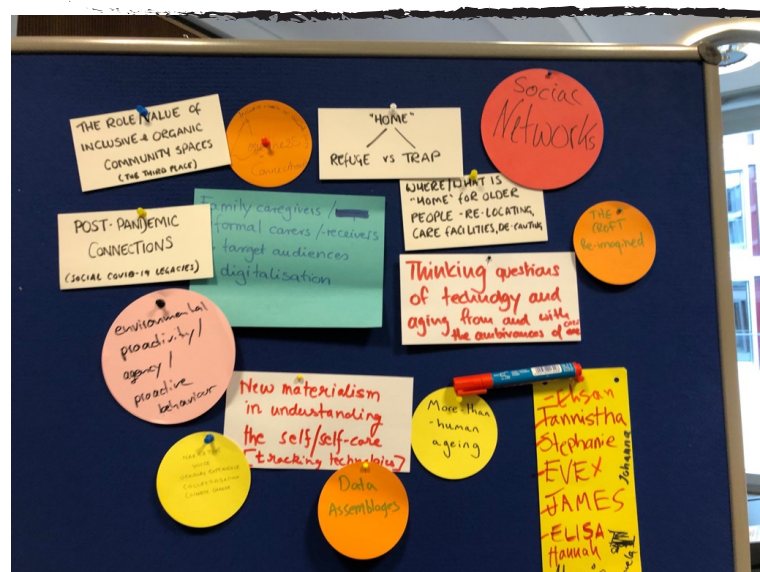 THE ROLE/VALUE OF
INCLUSIVE & ORGANIC
COMMUNITY SPACES
(THE THIRD PLACE)
"HOME"
REFUGE VS TRAP
Social
Networks
POST-PANDEMIC
CONNECTIONS
(SOCIAL COVID-19 LEGACIES)
Family caregivers /
formal carers /-receivers
target audiences
digitalisation
WHERE/WHAT IS
"HOME" FOR OLDER
PEOPLE - RE-LOCATING,
CARE FACILITIES,
THE
CROFT
Re-imagined
Thinking questions
of technology and
aging from and with
the ambivances of
environmental
proactivity/
agency/
proactive
behaviour
New materialism
in understanding
the self/self-care
[tracking technologies]
More than
-human
ageing
Data
Assemblages
-Ehsan
Tannistha
Stephanie
-EVEX
JAMES
-ELISA
Hannah
Johanna